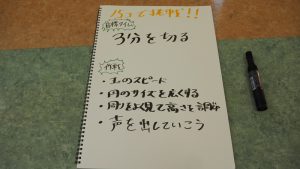 目標タイム
3分を切る
作戦
・玉のスピード
・円のサイズを広くする
・周りをよく見て高さを調節
・声を出していこう